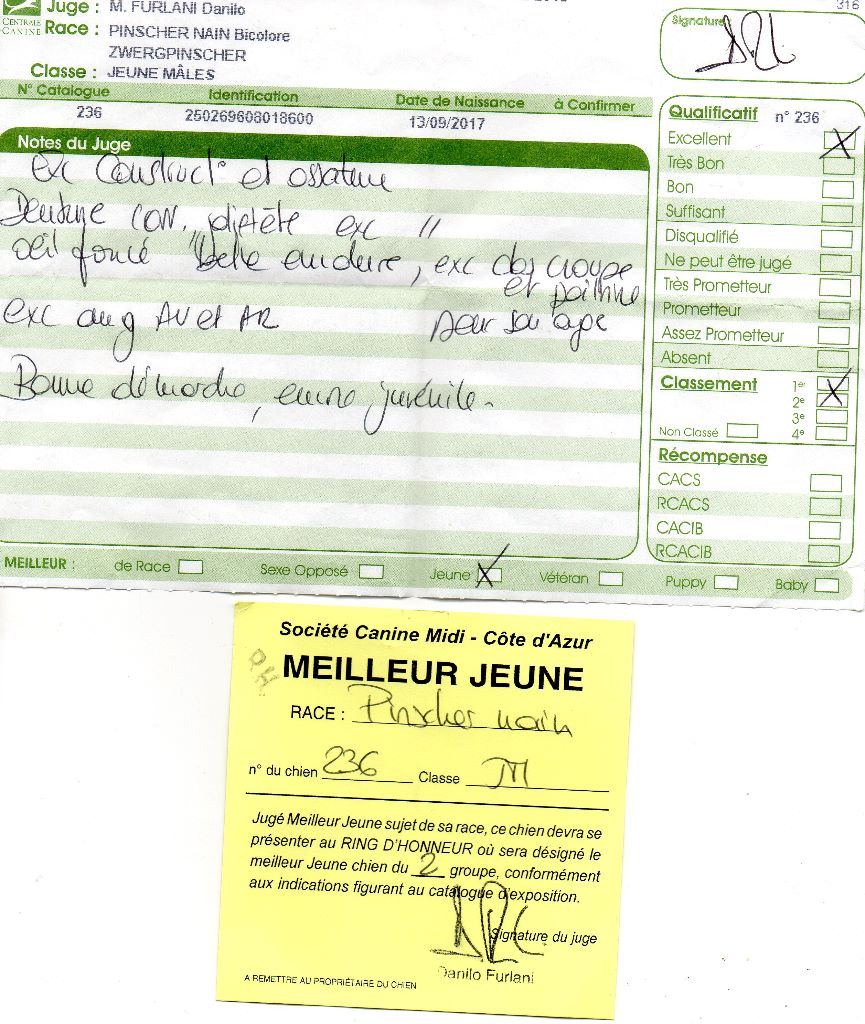 316
CENTRALE
CANINE
Juge : M. FURLANI Danilo
Race : PINSCHER NAIN Bicolore
ZWERGPINSCHER
Classe : JEUNE MÂLES
Signature
N° Catalogue Identification Date de Naissance à Confirmer
236 250269608018600 13/09/2017
Notes du Juge
exc Construct° et ossature
Denture CON. exc //
oeil foncé belle encolure, exc dos croupe
et poitrine
exc ang AV et AR pour son age
Bonne démarche, encore juvénile.
Qualificatif n° 236
Excellent X
Très Bon
Bon
Suffisant
Disqualifié
Ne peut être jugé
Très Prometteur
Prometteur
Assez Prometteur
Absent
Classement 1er
2e
3e
Non Classé 4e
Récompense
CACS
RCACS
CACIB
RCACIB
MEILLEUR : de Race Sexe Opposé Jeune X Vétéran Puppy Baby
Société Canine Midi - Côte d'Azur
MEILLEUR JEUNE
RACE : Pinscher nain
n° du chien 236 Classe M
Jugé Meilleur Jeune sujet de sa race, ce chien devra se
présenter au RING D'HONNEUR où sera désigné le
meilleur Jeune chien du 2 groupe, conformément
aux indications figurant au catalogue d'exposition.
Signature du juge
Danilo Furlani
A REMETTRE AU PROPRIÉTAIRE DU CHIEN